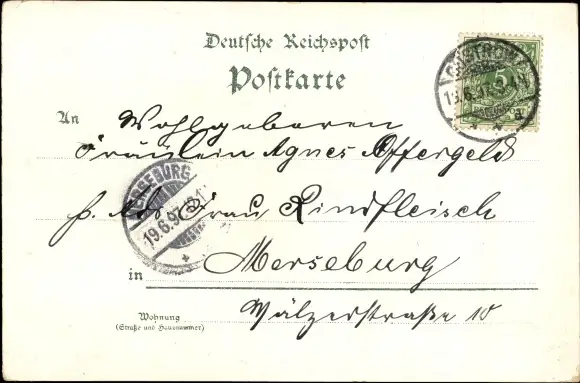 Deutsche Reichspost
Postkarte
An Wohlgeboren
Fräulein Agnes Offergeld
p. Adr. Frau Rindfleisch
in Merseburg
Wohnung
(Straße und Hausnummer)
Wälzerstraße 10
MERSEBURG
19.6.97
5